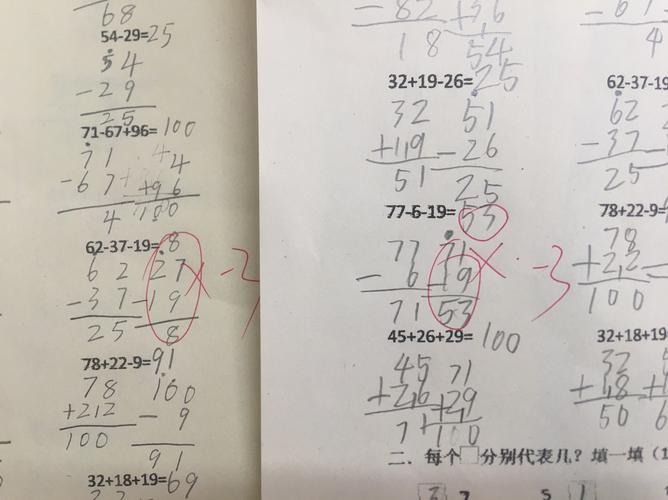 68
54-29=25
54
- 29
25
71-67+96=100
71 4
- 67 +96
4 100
62-37-19=8
62 27
- 37 - 19
25 8
× -3
78+22-9=91
78 100
+22 - 9
100 91
32+18+19=69
- 82 +36
18 54
32+19-26=25
32 51
+19 - 26
51 25
77-6-19=53
77 71
- 6 - 19
71 53
× -3
45+26+29=100
45 71
+26 +29
71 100
二、每个□分别代表几？填一填（1
3 7 5 1
4
62-37-19
62
- 37
25
78+22-9=
78
+22
100
32+18+19
32
+18
50